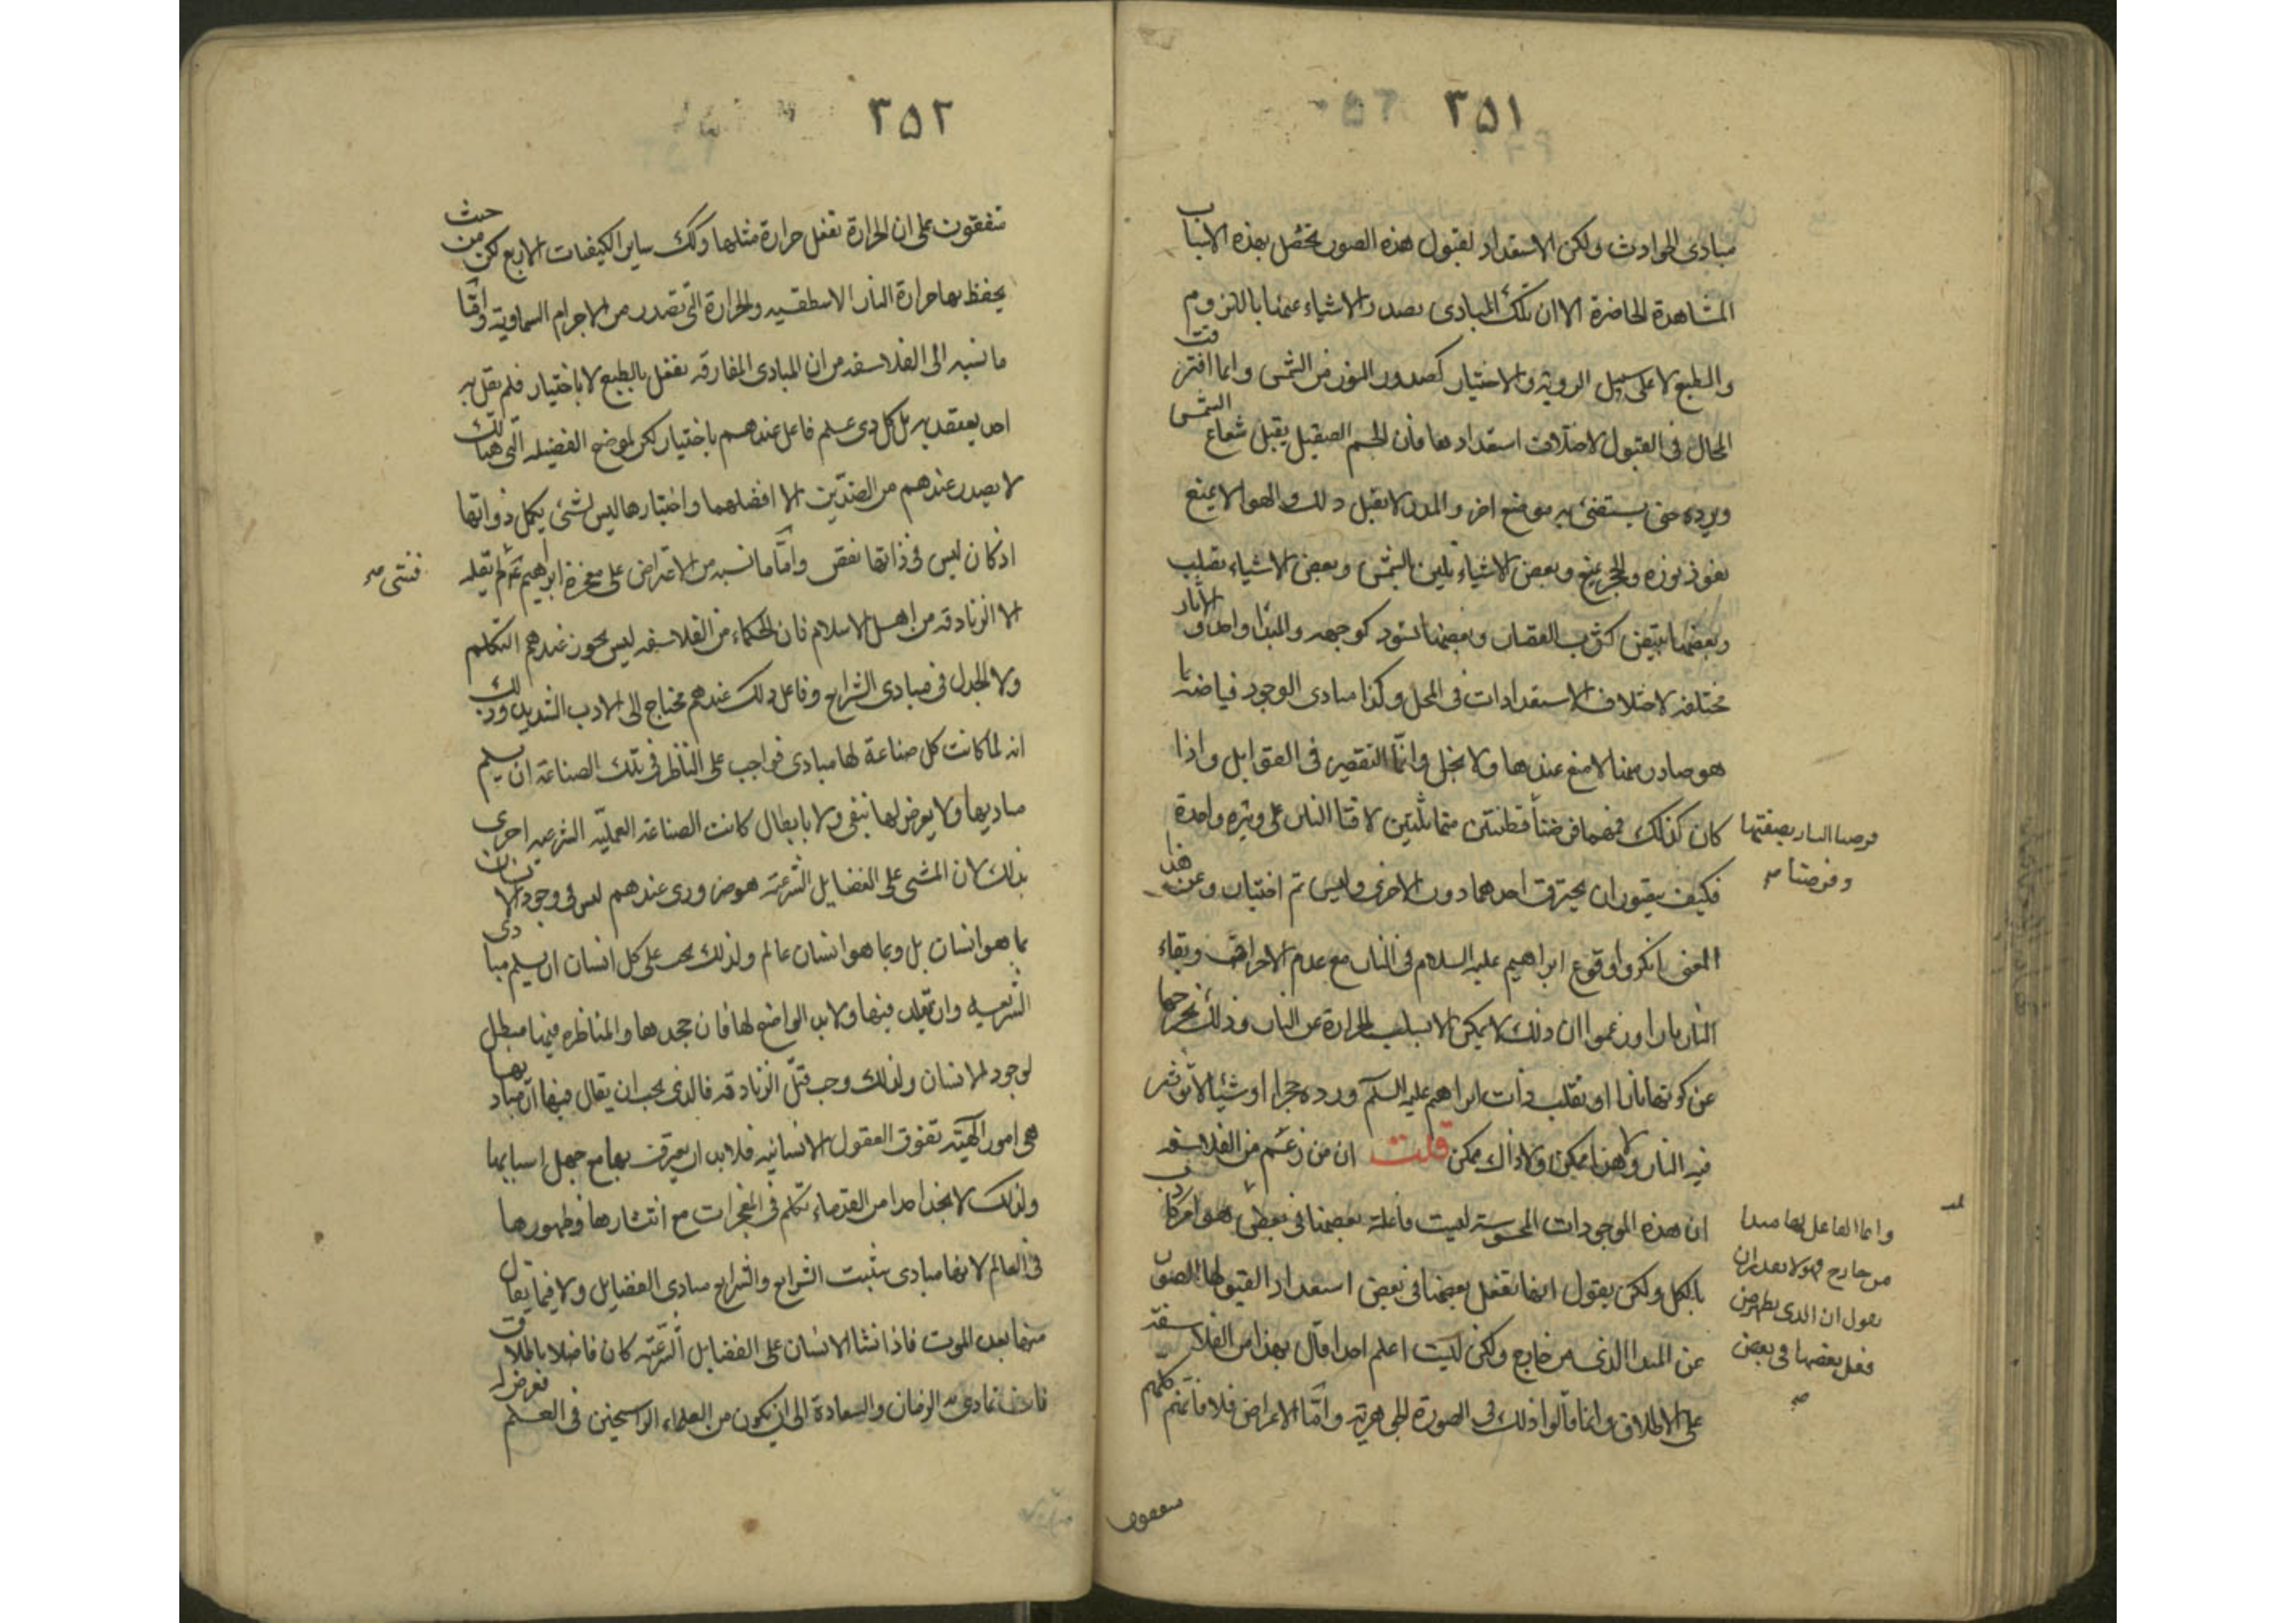 ٣٥١
مبادى الحوادث ولكن الاستعداد لقبول هذه الصور يحصل بهذه الاسباب
المشاهدة الحاضرة الا ان تلك المبادى يصدر الاشياء عنها باللزوم
والطبع لا على سبيل الروية والاختيار كصدور النور من الشمس وانما افترقت
المحال فى القبول لاختلاف استعدادها فان الجسم الصقيل يقبل شعاع الشمس
ويرده حتى يستضئ به موضع اخر والمدر لا يقبل ذلك والهوا لا يمنع
نفوذ نوره والحجر يمنع وبعض الاشياء يلين بالشمس وبعض الاشياء يصلب
وبعضها يبيض كثوب القصار وبعضها تسود كوجهه والمبدأ واحد والاثار
مختلفة لاختلاف الاستعدادات فى المحل وكذا مبادى الوجود فياضة بما
هو صادر منها لا منع عندها ولا بخل وانما التقصير فى القوابل واذا
كان كذلك فمهما فرضنا قطنتين متماثلتين لاقتا النار على وتيرة واحدة
فرضنا النار بصفتها
وفرضنا صح
فكيف يتصور ان يحترق احدهما دون الاخرى وليس ثم اختيار وعن هذا
المعنى انكروا وقوع ابراهيم عليه السلام فى النار مع عدم الاحراق وبقاء
النار نارا وزعموا ان ذلك لا يمكن الا بسلب الحرارة عن النار وذلك يخرجها
عن كونها نارا او بقلب ذات ابراهيم عليه السلم ورده حجرا او شيئا لا تؤثر
فيه النار ولا هذا ممكن ولا ذاك ممكن قلت ان من زعم من الفلاسفه
ان هذه الموجودات المحسوسة ليست فاعلة بعضها فى بعض فهو امر كاذب
وانما الفاعل لها مبدا
من خارج فهو لا يقدر ان
يقول ان الذى يظهر من
فعل بعضها فى بعض
صح
بالكل ولكن يقول انها تفعل بعضها فى بعض استعدادا لقبولها الصور
عن المبدا الذى من خارج ولكن ليست اعلم احدا قال بهذا من الفلاسفة
على الاطلاق وانما قالوا ذلك فى الصورة الجوهرية واما الاعراض فلا فانهم كلهم
متفقون
٣٥٢
متفقون على ان الحرارة تفعل حرارة مثلها وكك ساير الكيفيات الاربع لكن من حيث
يحفظ بها حرارة النار الاسطقسيه والحرارة التى تصدر من الاجرام السماوية واما
ما نسبه الى الفلاسفه من ان المبادى المفارقه تفعل بالطبع لا باختيار فلم يقل به
احد يعتقد به بل كل ذى علم فاعل عندهم باختيار لكن لموضع الفضيلة التى هنالك
لا يصدر عندهم من الضدين الا افضلهما واختيارها ليس لشئ يكمل ذواتها
اذ كان ليس فى ذاتها نقص واما ما نسبه من الاعتراض على معجزة ابراهيم عم لم يقله
فشئ صح
الا الزنادقه من اهل الاسلام فان الحكماء من الفلاسفه ليس يجوز عندهم التكلم
ولا الجدل فى مبادى الشرايع وفاعل ذلك عندهم محتاج الى الادب الشديد وذلك
انه لما كانت كل صناعة لها مبادى فواجب على الناظر فى تلك الصناعة ان يسلم
مباديها ولا يعرض لها بنفى ولا بابطال كانت الصناعة العملية الشرعيه احرى
بذلك لان المشى على الفضايل الشرعية هو ضرورى عندهم ليس فى وجود الانسان
بما هو انسان بل وبما هو انسان عالم ولذلك يجب على كل انسان ان يسلم مبادى
الشريعه وان يقلد فيها ولا بد الواضع لها فان جحدها والمناظره فيها مبطل
لوجود الانسان ولذلك وجب قتل الزنادقه فالذى يجب ان يقال فيها ان مباديها
هى امور الهية تفوق العقول الانسانيه فلا بد ان يعترف بها مع جهل اسبابها
ولذلك لا نجد احدا من القدماء تكلم فى المعجزات مع انتشارها وظهورها
فى العالم لانها مبادى تثبيت الشرايع والشرايع مبادى الفضايل ولا فيما يقال
منها بعد الموت فاذا نشا الانسان على الفضايل الشرعية كان فاضلا باطلاق
فان تمادى به الزمان والسعادة الى ان يكون من العلماء الراسخين فى العلم فعرض له